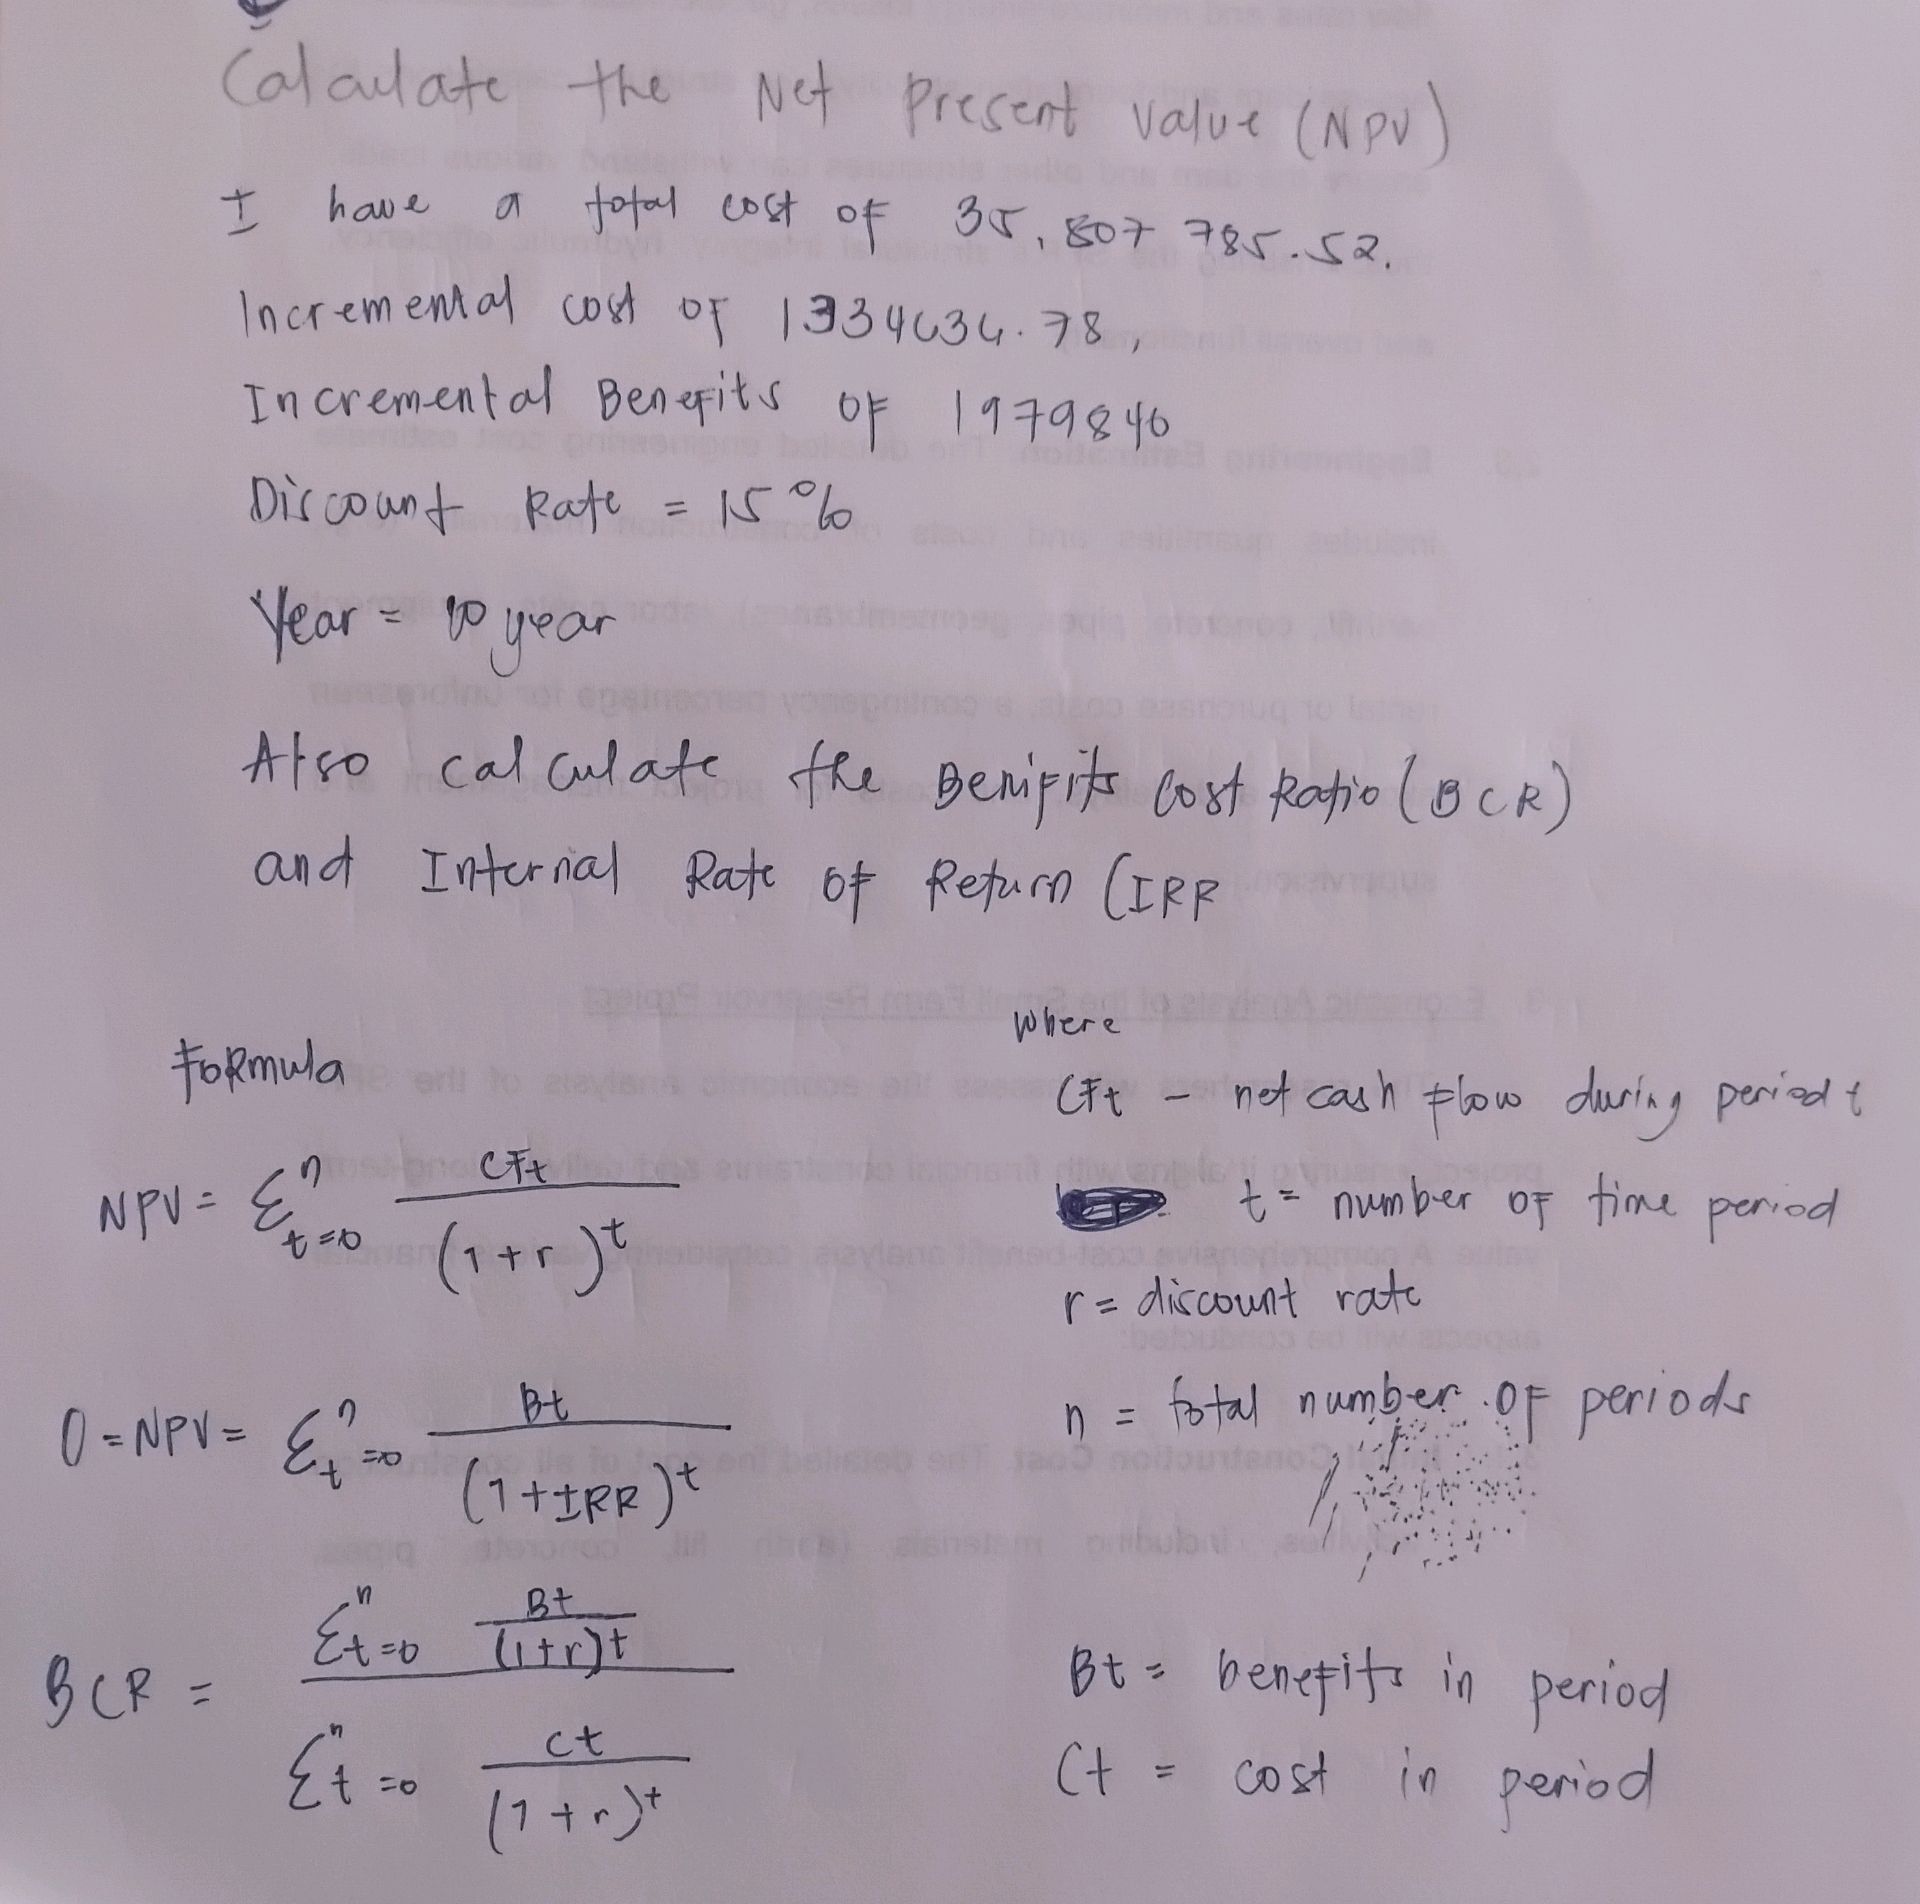 Calculate the Net Present Value (NPV)
I have a total cost of 35,807 785.52.
Incremental cost of 1334634.78,
Incremental Benefits of 1979840
Discount Rate = 15%
Year = 10 year
Also calculate the Benifits Cost Ratio (BCR)
and Internal Rate of Return (IRR
Formula
NPV = Σ^n t=0 CFt / (1+r)^t
0 = NPV = Σ^n t=0 Bt / (1+IRR)^t
BCR = Σ^n t=0 Bt / (1+r)t
Σ^n t=0 Ct / (1+r)^t
Where
CFt - net cash flow during period t
t = number of time period
r = discount rate
n = total number of periods
Bt = benefits in period
Ct = cost in period
3. Economic Analysis of the Small Farm Reservoir Project